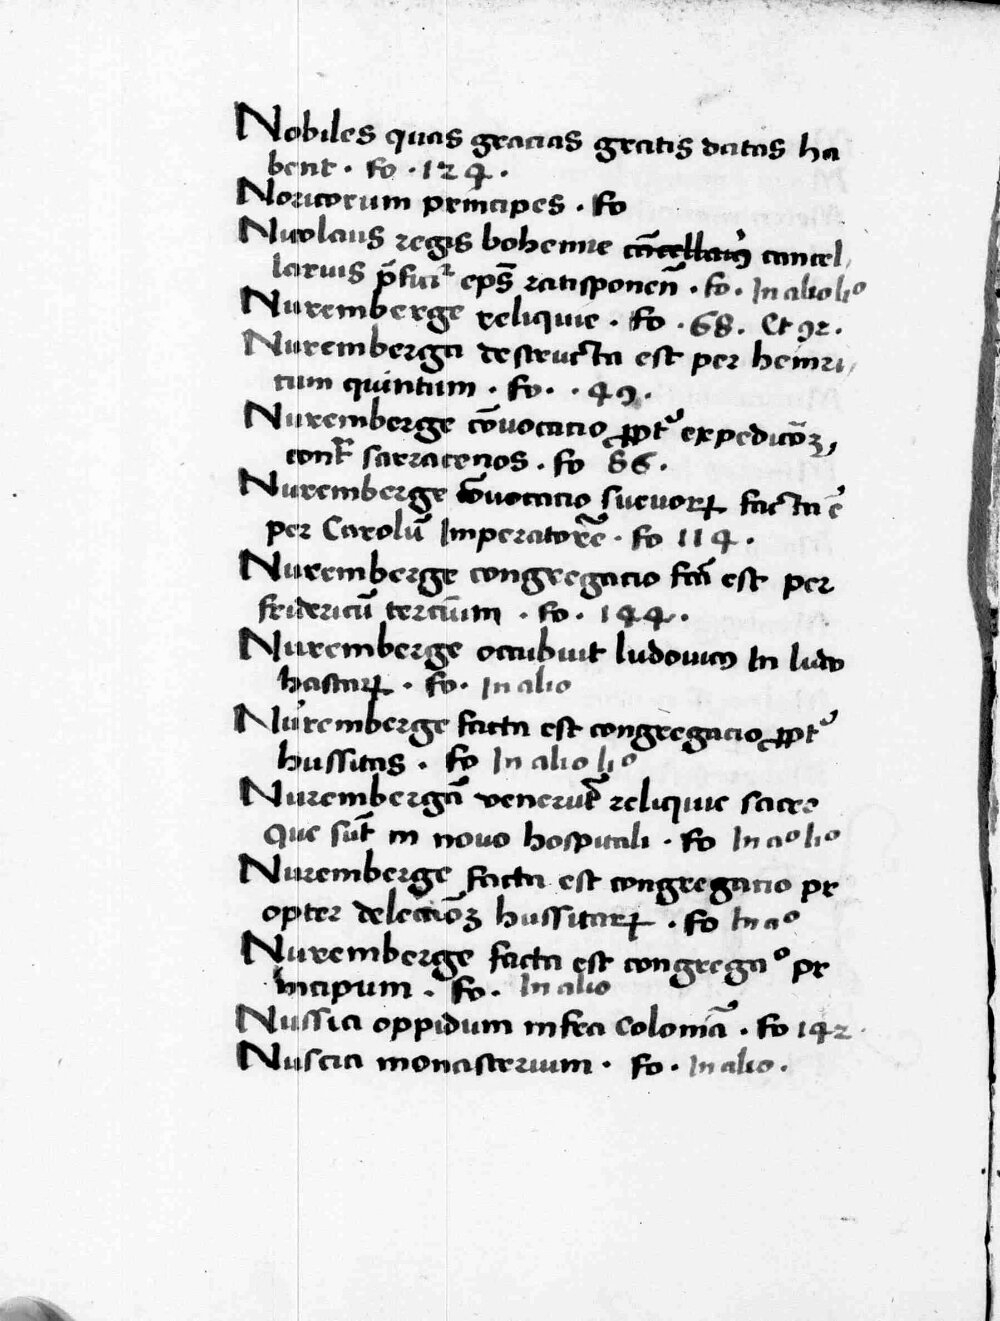 Nobiles quas gracias gratis datas ha
bent . fo . 124 .
Noricorum principes . fo
Nicolaus regis bohemie cancel
larius p̄ficit᷑ ep̄s ratisponen̄ . fo . In alio lio
Nuremberge reliquie . fo . 68 . Et 92 .
Nuremberga destructa est per heinri
cum quintum . fo . . 49 .
Nuremberge cōuocacio ꝓpt᷑ expedicōꝫ
cont᷑ sarracenos . fo 86 .
Nuremberge cōuocacio sueuoꝝ facta ē
per Carolū Imperatorē . fo 114 .
Nuremberge congregacio fcā est per
fridericū tercium . fo . 144 .
Nuremberge occubuit ludouicus In ludo
hastaꝝ . fo . In alio
Nuremberge facta est congregacio ꝓpt᷑
hussitas . fo In alio lio
Nurembergā venerūt reliquie sacre
que sūt in nouo hospitali . fo In ao lio
Nuremberge facta est congregacio pr
opter delecōꝫ hussitaꝝ . fo In ao
Nuremberge facta est congregao pr
incipum . fo . In alio
Nussia oppidum infra Coloniā . fo 142
Nuscia monasterium . fo . In alio .